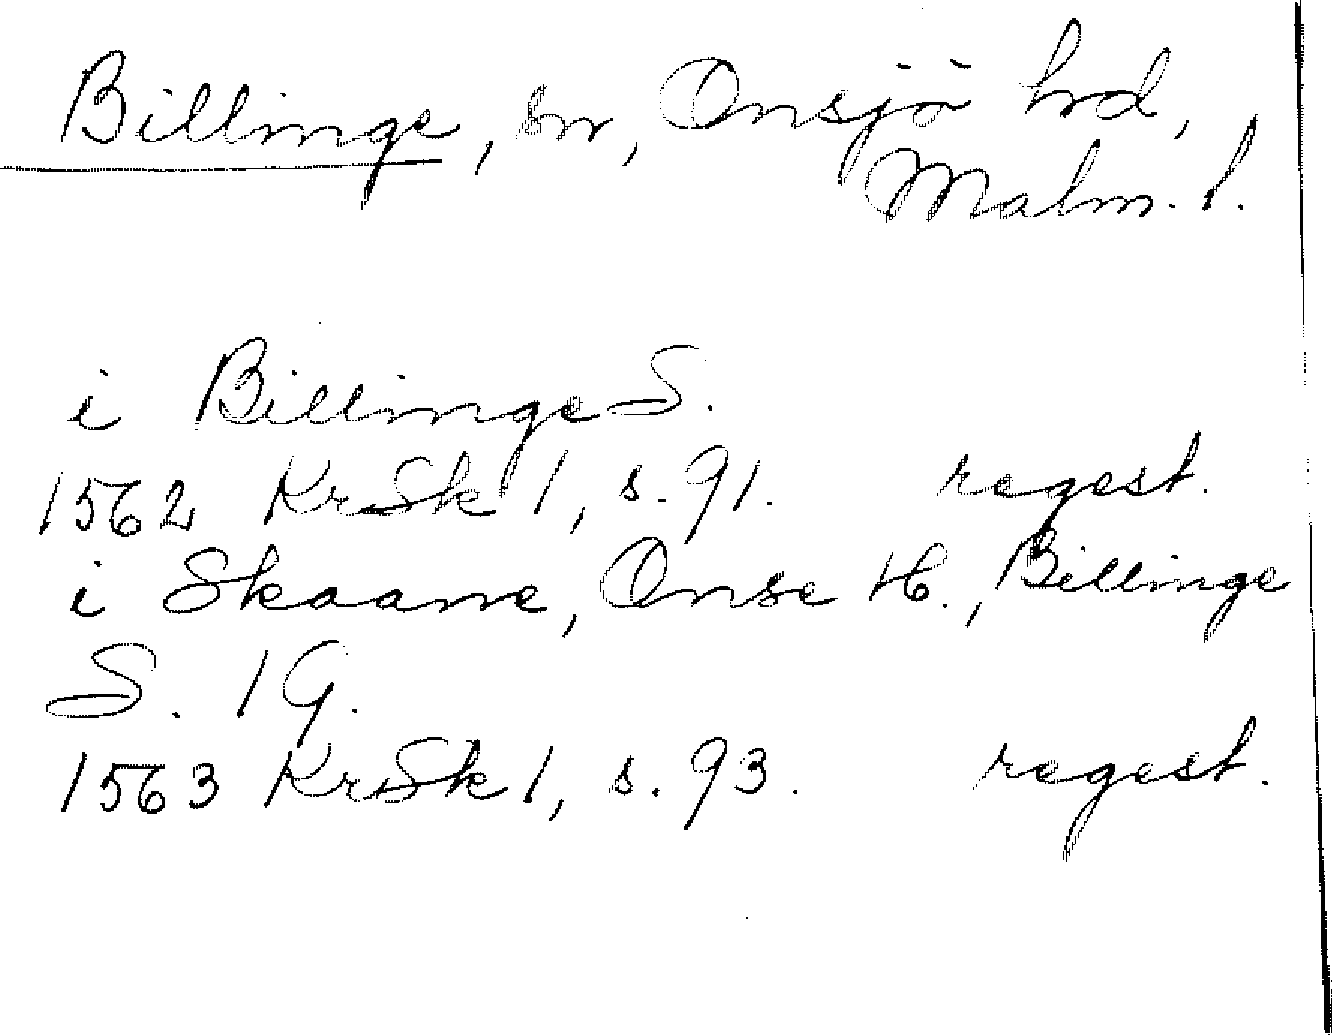 Billinge, sn, Onsjö hrd,
Malm. l.
i Billinge S.
1562 KrSk 1, s. 91. regest.
i Skaane, Onse H., Billinge
S. 1 G.
1563 KrSk 1, s. 93. regest.